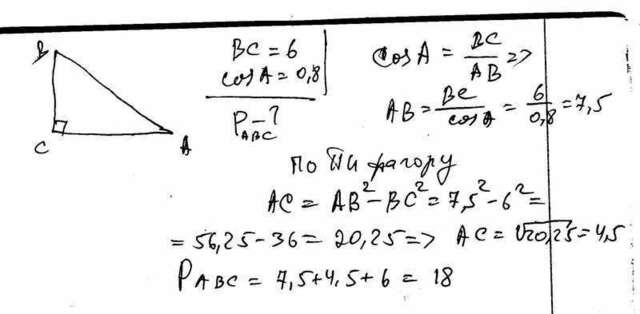 B
C
A
BC = 6
cosA = 0,8
P_ABC - ?
cosA = BC/AB =>
AB = BC/cosA = 6/0,8 = 7,5
по Пифагору
AC = AB² - BC² = 7,5² - 6² =
= 56,25 - 36 = 20,25 => AC = √20,25 = 4,5
P_ABC = 7,5 + 4,5 + 6 = 18